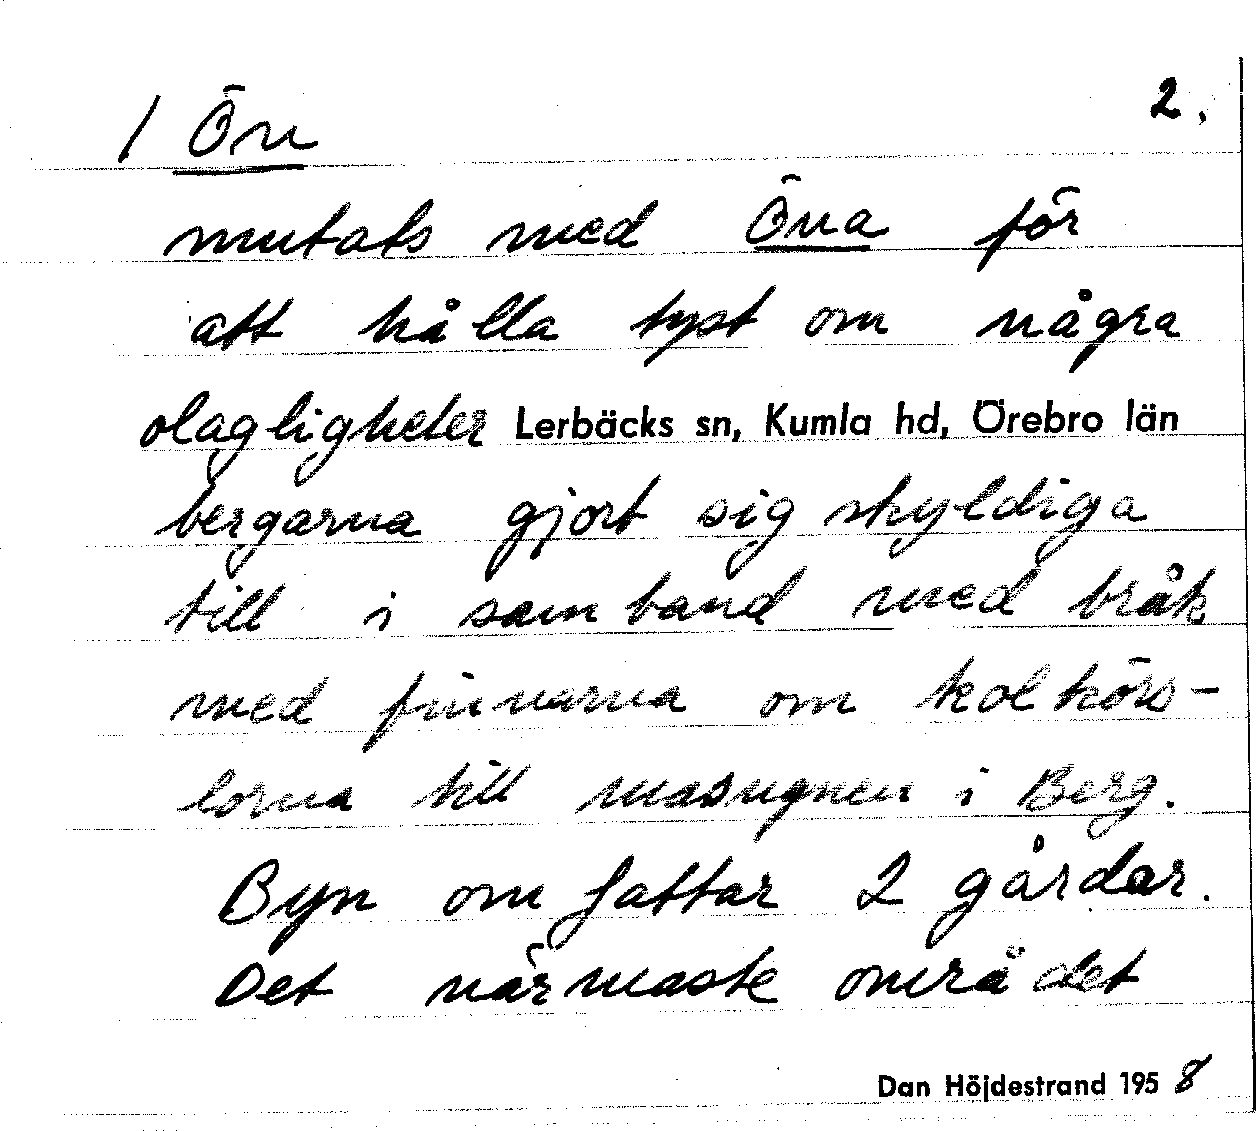 / Ön 2.
mutats med Öna för
att hålla tyst om några
olagligheter Lerbäcks sn, Kumla hd, Örebro län
bergarna gjort sig skyldiga
till i samband med bråk
med finnarna om kolkörs-
lorna till masugnen i Berg.
Byn omfattar 2 gårdar.
Det närmaste området
Dan Höjdestrand 1958